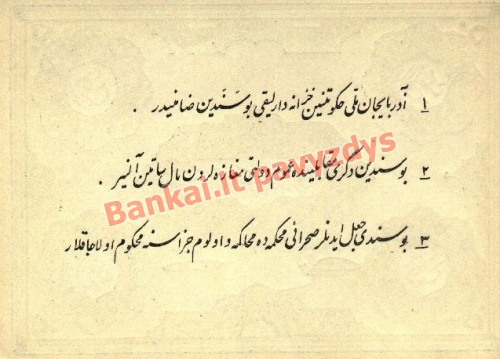 ۱ آذربایجان ملی حکومتنین خزانه دارلیقی بو سندین ضامنیدر .
۲ بو سندین دگری مقابلینده عموم دولتی مغازه لردن مال ساتین آلنیر .
۳ بو سندی جعل ایدنلر صحرائی محکمه ده محاکمه و اولوم جزاسنه محکوم اولاجاقلار
Bankai.lt pavyzdys